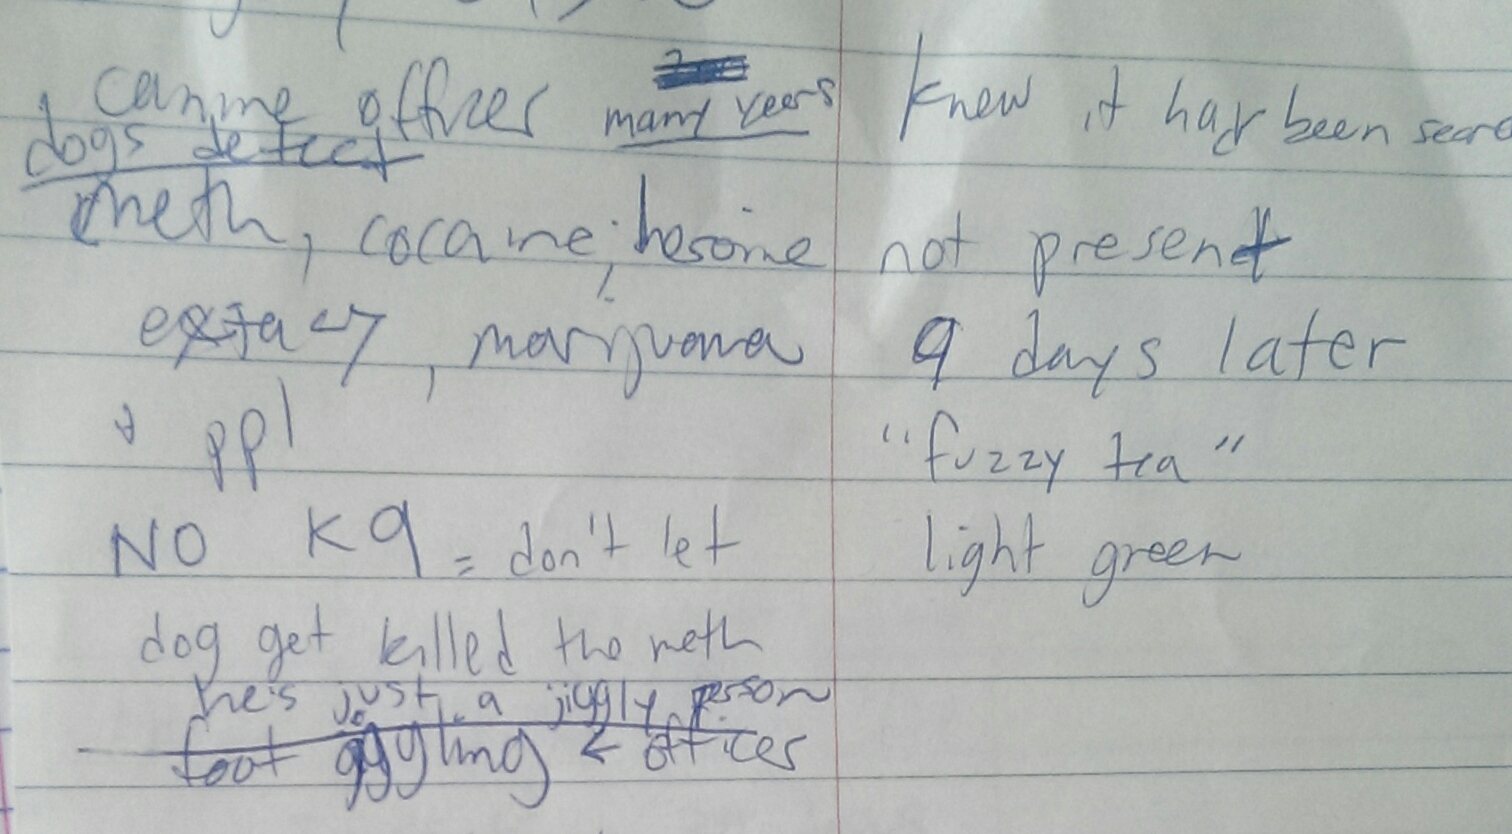 canine officer many years
dogs detect
meth, cocaine, heroine
extacy, marijuana
+ ppl
NO K9 = don't let
dog get killed the meth
he's just a jiggly person
foot jiggling < officer
knew it had been sear
not present
9 days later
"fuzzy tea"
light green